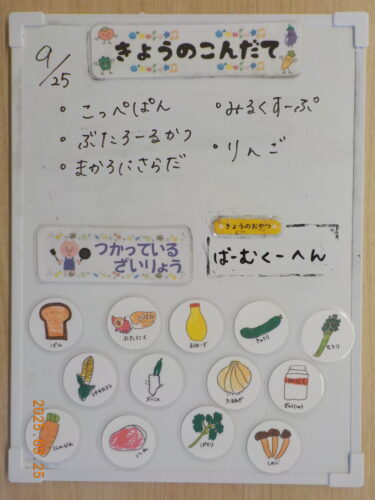 きょうのこんだて
9/25
・こっぺぱん
・ぶたろーるかつ
・まかろにさらだ
・みるくすーぷ
・りんご
つかっている
ざいりょう
きょうのおやつ
ばーむくーへん
ぱん
ぶたにく
まよねーず
きゅうり
せろり
とうもろこし
だいこん
たまねぎ
ぎゅうにゅう
にんじん
はむ
ぱせり
しめじ
2025.09.25